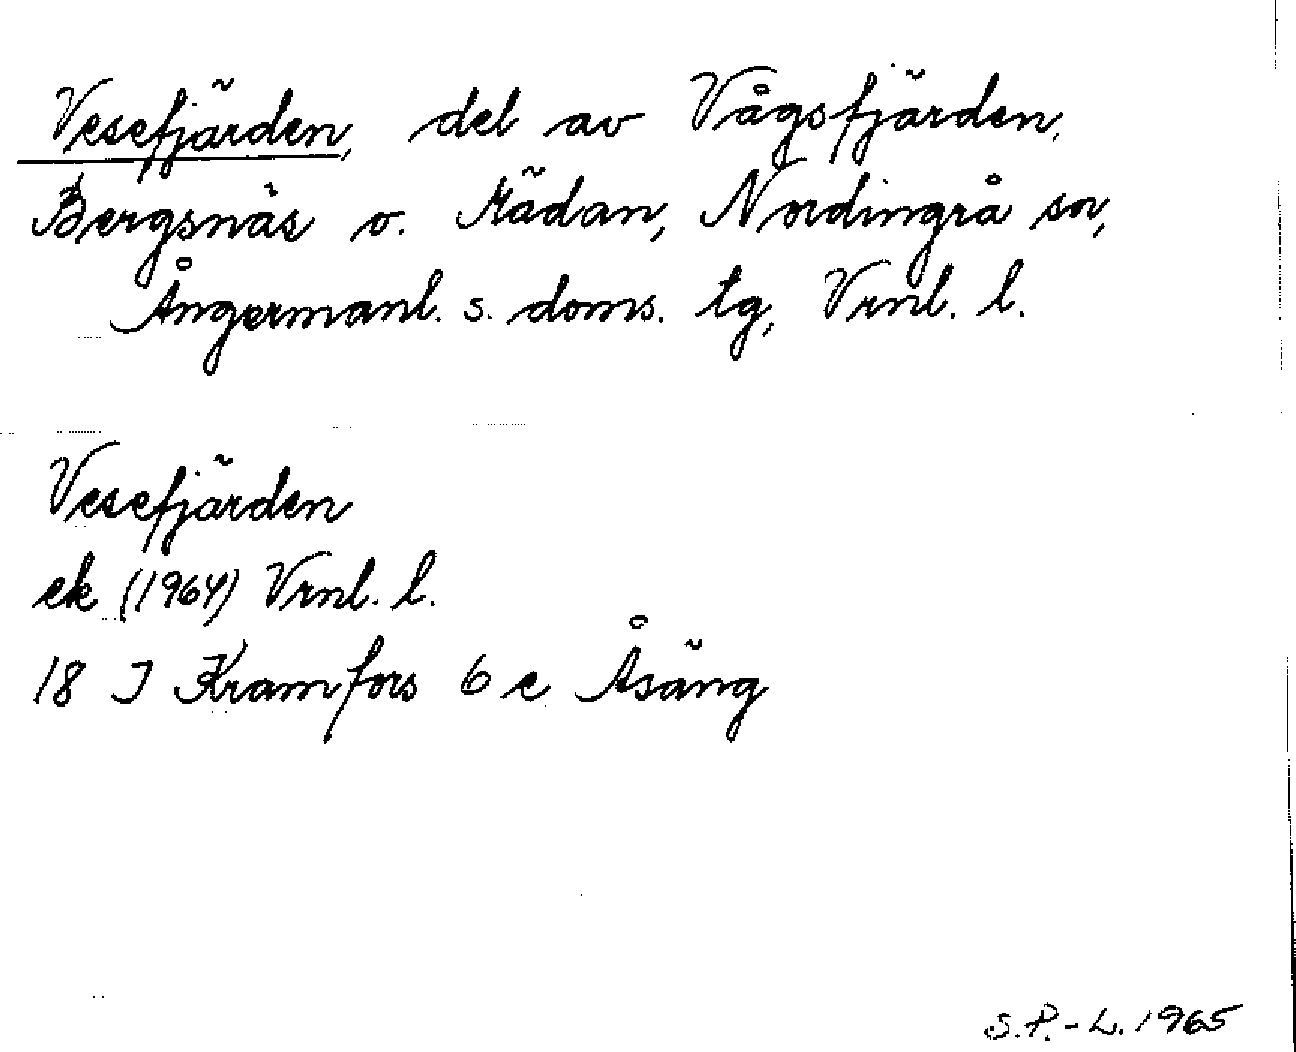 Vesefjärden, del av Vågsfjärden,
Bergsnäs o. Mädan, Nordingrå sn,
Ångermanl. s. doms. tg, Vrnl. l.
Vesefjärden
ek (1964) Vrnl. l.
18 I Kramfors 6 e Åsäng
S.P.-L. 1965